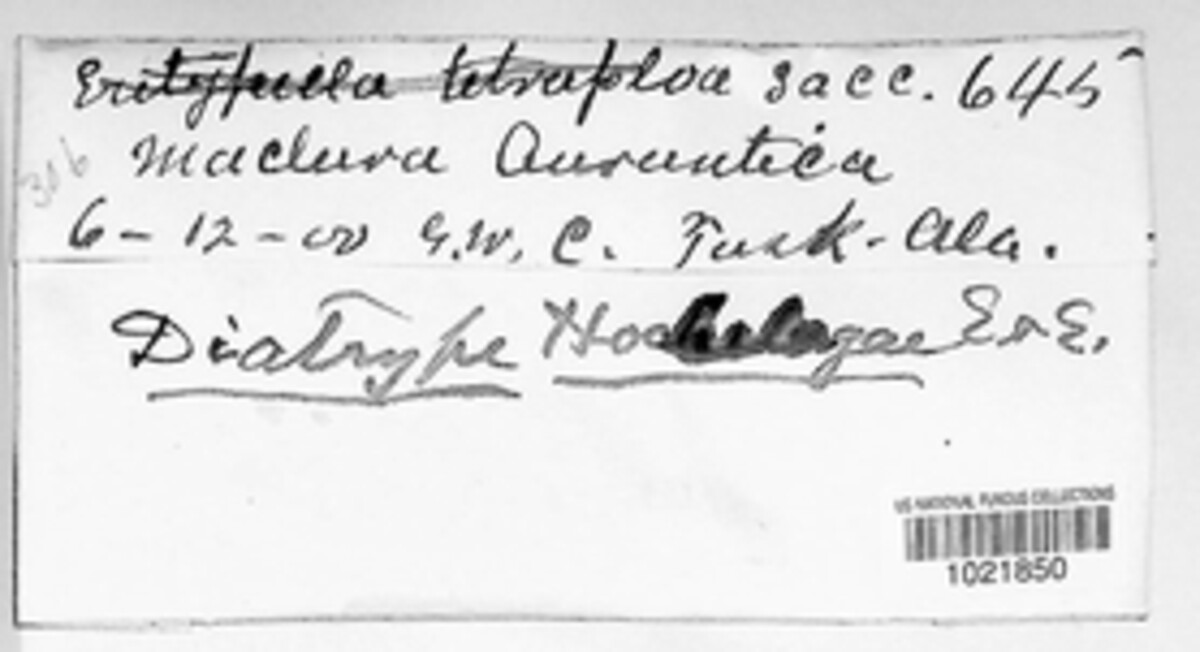 Eutypella tetraploa Sacc. 645
306
Maclura Aurantica
6-12-00 G.W. C. Tusk-Ala.
Diatrype Hochelagae E & E.
US NATIONAL FUNGUS COLLECTIONS
1021850